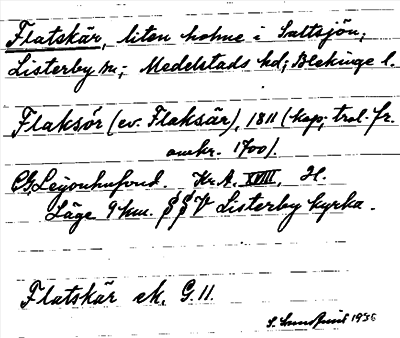 Flatskär, liten holme i Saltsjön;
Listerby sn; Medelstads hd; Blekinge l.
Flaksör (ev. Flaksär), 1811 (kop; trol. fr.
omkr. 1700).
CG Leijonhufvud. Kr. A. XVIII, H.
Läge 9 km. SSV Listerby kyrka.
Flatskär ek. G. 11.
1956